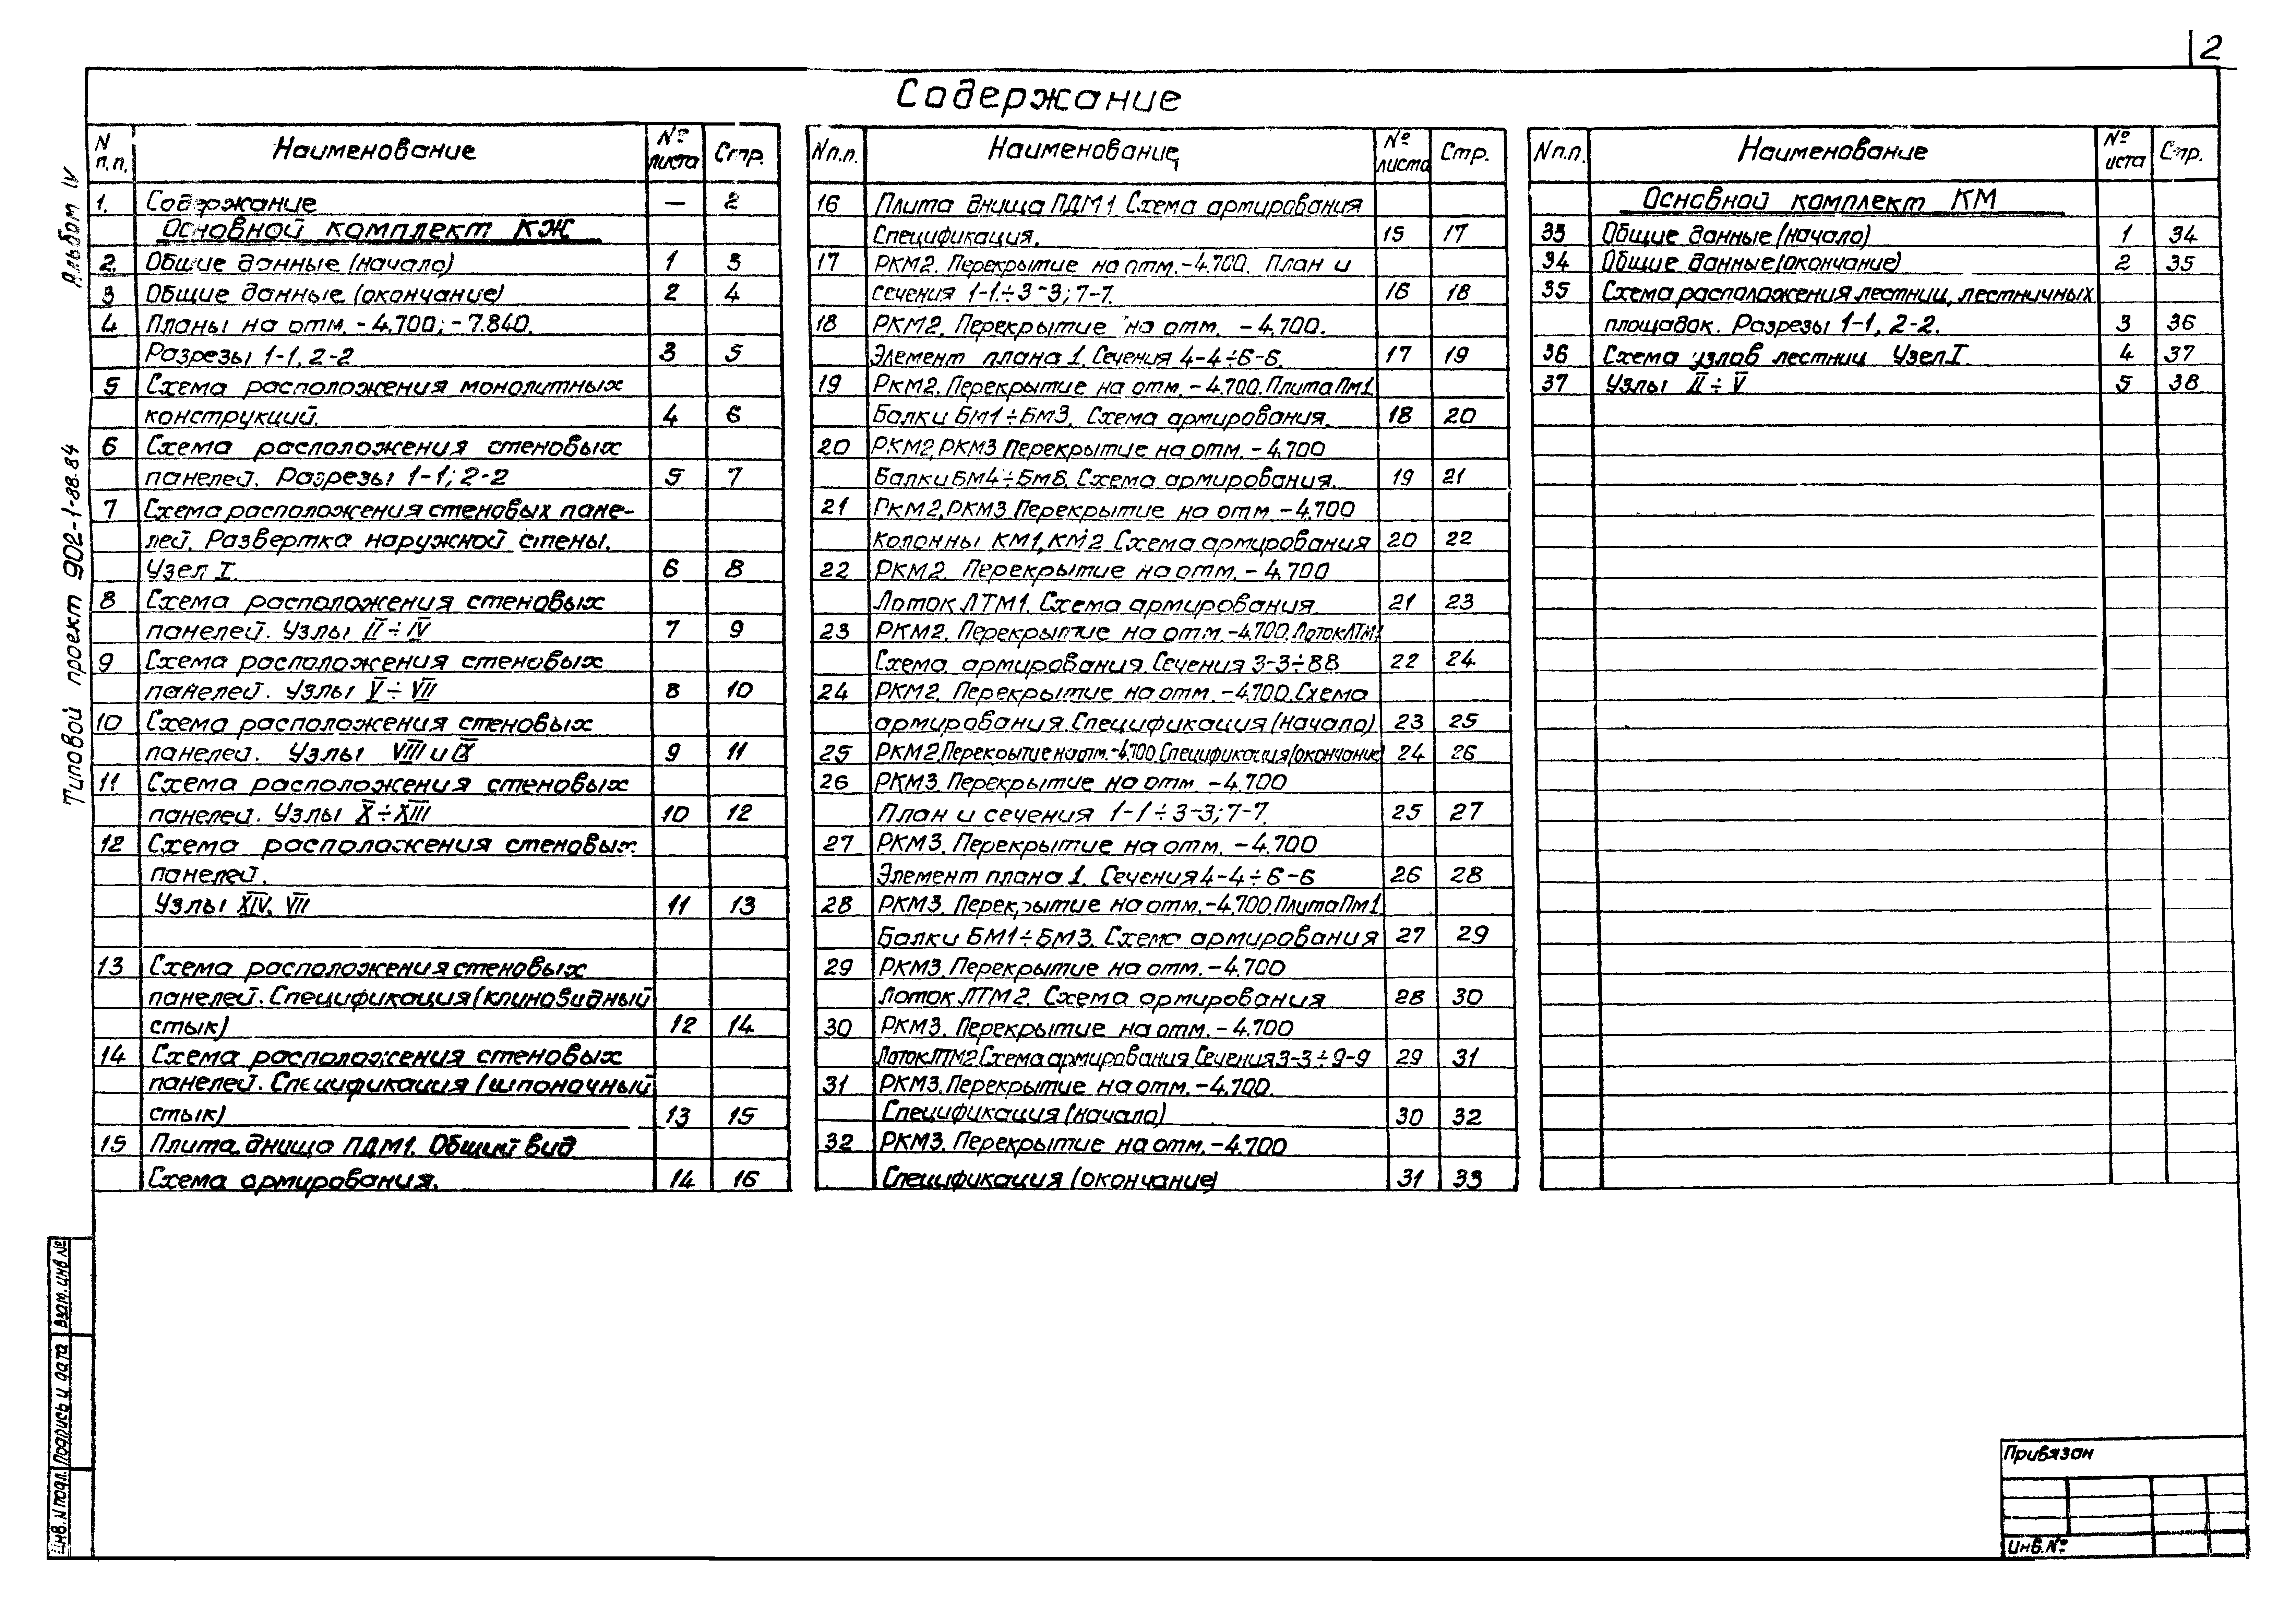 2
Содержание
Альбом IV
Типовой проект 902-1-88.84
N п.п. Наименование № листа Стр.
1. Содержание — 2
Основной комплект КЖ
2. Общие данные (начало) 1 3
3 Общие данные (окончание) 2 4
4 Планы на отм. -4.700; -7.840.
Разрезы 1-1, 2-2 3 5
5 Схема расположения монолитных
конструкций. 4 6
6 Схема расположения стеновых
панелей. Разрезы 1-1; 2-2 5 7
7 Схема расположения стеновых пане-
лей. Развертка наружной стены.
Узел I. 6 8
8 Схема расположения стеновых
панелей. Узлы II ÷ IV 7 9
9 Схема расположения стеновых
панелей. Узлы V ÷ VII 8 10
10 Схема расположения стеновых
панелей. Узлы VIII и IX 9 11
11 Схема расположения стеновых
панелей. Узлы X ÷ XIII 10 12
12 Схема расположения стеновых
панелей.
Узлы XIV, VII 11 13
13 Схема расположения стеновых
панелей. Спецификация (клиновидный
стык) 12 14
14 Схема расположения стеновых
панелей. Спецификация (шпоночный
стык) 13 15
15 Плита днища ПДМ1. Общий вид
Схема армирования. 14 16
Nп.п. Наименование № листа Стр.
16 Плита днища ПДМ1 Схема армирования
Спецификация. 15 17
17 РКМ2. Перекрытие на отм. -4.700. План и
сечения 1-1 ÷ 3-3; 7-7. 16 18
18 РКМ2. Перекрытие на отм. -4.700.
Элемент плана 1. Сечения 4-4 ÷ 6-6. 17 19
19 РКМ2. Перекрытие на отм. -4.700. Плита Пм1
Балки БМ1 ÷ БМ3. Схема армирования. 18 20
20 РКМ2, РКМ3 Перекрытие на отм. -4.700
Балки БМ4 ÷ БМ8. Схема армирования. 19 21
21 РКМ2, РКМ3 Перекрытие на отм -4.700
Колонны КМ1, КМ2 Схема армирования 20 22
22 РКМ2. Перекрытие на отм. -4.700
Лоток ЛТМ1. Схема армирования. 21 23
23 РКМ2. Перекрытие на отм. -4.700. Лоток ЛТМ1
Схема армирования. Сечения 3-3 ÷ 88 22 24
24 РКМ2. Перекрытие на отм. -4.700. Схема
армирования. Спецификация (начало) 23 25
25 РКМ2. Перекрытие на отм. -4.700 Спецификация (окончание) 24 26
26 РКМ3. Перекрытие на отм -4.700
План и сечения 1-1 ÷ 3-3; 7-7. 25 27
27 РКМ3. Перекрытие на отм. -4.700
Элемент плана 1. Сечения 4-4 ÷ 6-6 26 28
28 РКМ3. Перекрытие на отм. -4.700. Плита Пм1.
Балки БМ1 ÷ БМ3. Схема армирования 27 29
29 РКМ3. Перекрытие на отм. -4.700
Лоток ЛТМ2. Схема армирования 28 30
30 РКМ3. Перекрытие на отм. -4.700
Лоток ЛТМ2 Схема армирования Сечения 3-3 ÷ 9-9 29 31
31 РКМ3. Перекрытие на отм. -4.700.
Спецификация (начало) 30 32
32 РКМ3. Перекрытие на отм. -4.700
Спецификация (окончание) 31 33
Nп.п. Наименование № иста Стр.
Основной комплект КМ
33 Общие данные (начало) 1 34
34 Общие данные (окончание) 2 35
35 Схема расположения лестниц, лестничных
площадок. Разрезы 1-1, 2-2. 3 36
36 Схема узлов лестниц Узел I. 4 37
37 Узлы II ÷ V 5 38
Взам. инв №
Подпись и дата
Инв. N подл.
Привязан
Инв. №